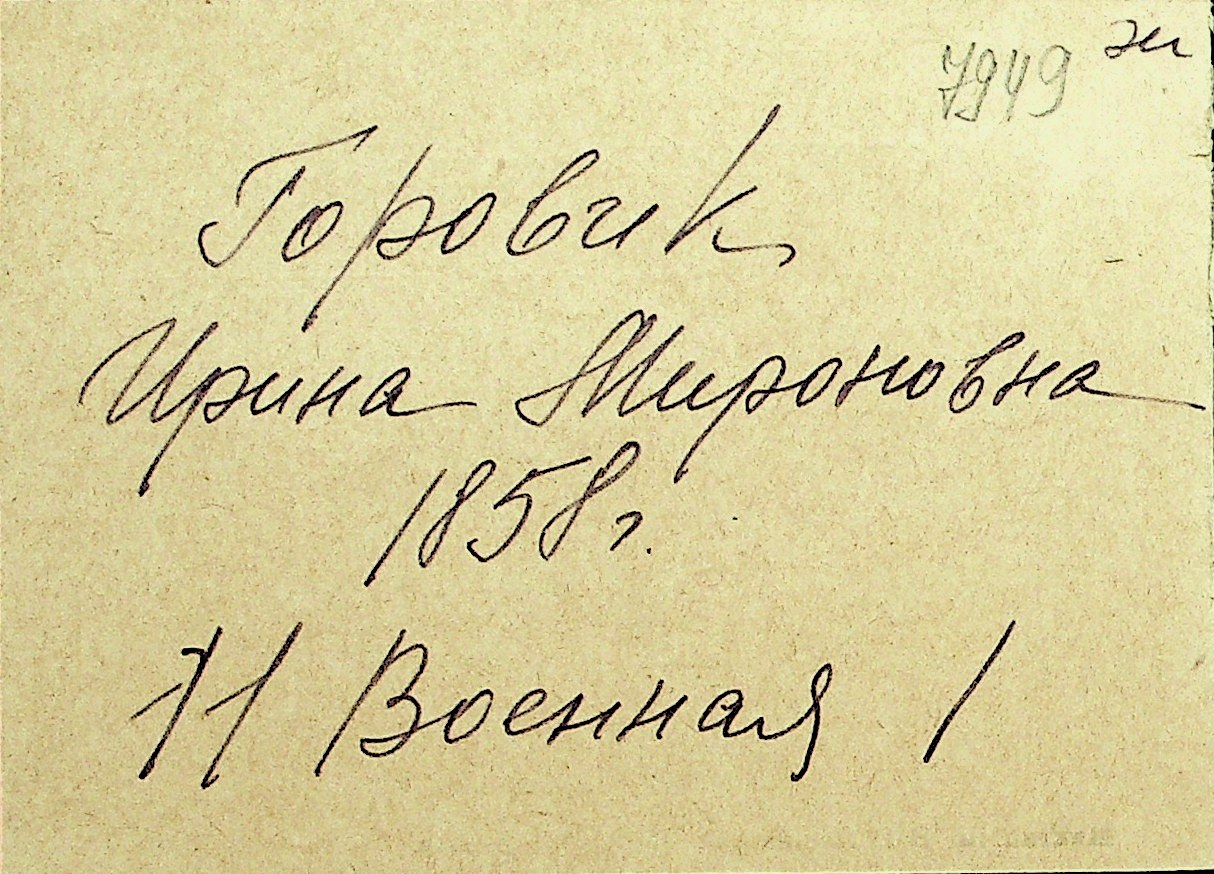 7949 эк
Горовик
Ирина Мироновна
1858г.
Военная 1